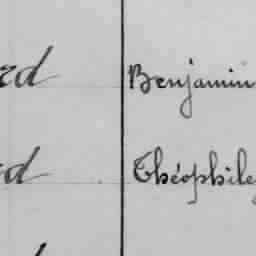 rd Benjamin
rd Théophile